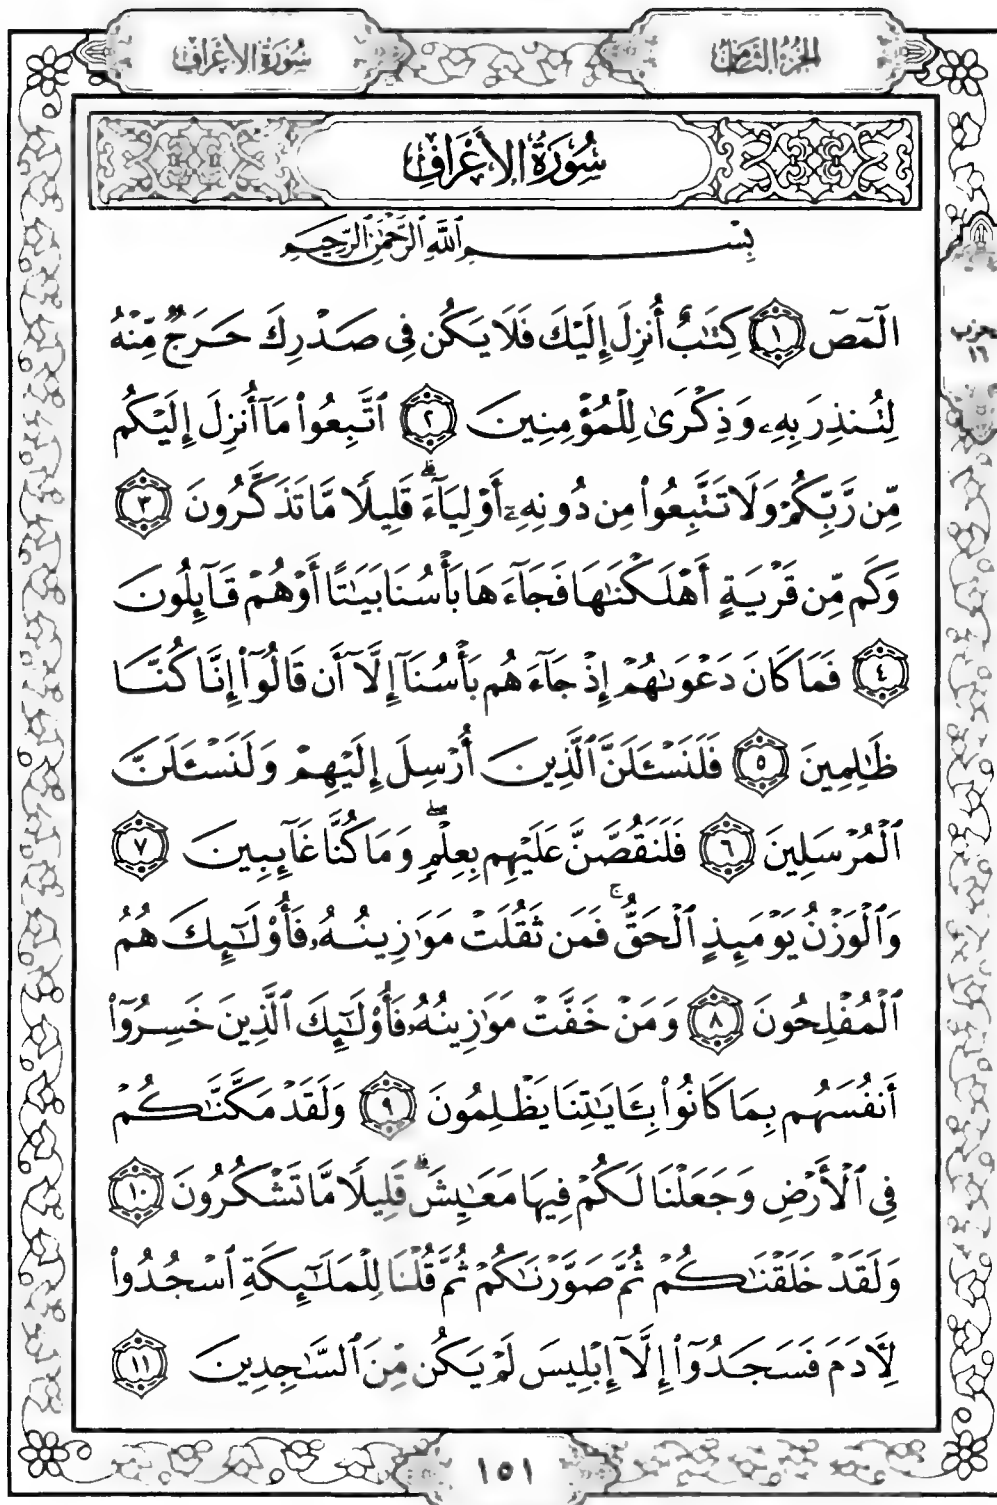 الجزء الثامن
سورة الأعراف
سُورَةُ الأَعْرَافِ
بِسْمِ ٱللَّهِ ٱلرَّحْمَٰنِ ٱلرَّحِيمِ
حزب
١٦
الٓمٓصٓ ١ كِتَٰبٌ أُنزِلَ إِلَيْكَ فَلَا يَكُن فِى صَدْرِكَ حَرَجٌ مِّنْهُ
لِتُنذِرَ بِهِۦ وَذِكْرَىٰ لِلْمُؤْمِنِينَ ٢ ٱتَّبِعُوا۟ مَآ أُنزِلَ إِلَيْكُم
مِّن رَّبِّكُمْ وَلَا تَتَّبِعُوا۟ مِن دُونِهِۦٓ أَوْلِيَآءَ ۗ قَلِيلًا مَّا تَذَكَّرُونَ ٣
وَكَم مِّن قَرْيَةٍ أَهْلَكْنَٰهَا فَجَآءَهَا بَأْسُنَا بَيَٰتًا أَوْ هُمْ قَآئِلُونَ
٤ فَمَا كَانَ دَعْوَىٰهُمْ إِذْ جَآءَهُم بَأْسُنَآ إِلَّآ أَن قَالُوٓا۟ إِنَّا كُنَّا
ظَٰلِمِينَ ٥ فَلَنَسْـَٔلَنَّ ٱلَّذِينَ أُرْسِلَ إِلَيْهِمْ وَلَنَسْـَٔلَنَّ
ٱلْمُرْسَلِينَ ٦ فَلَنَقُصَّنَّ عَلَيْهِم بِعِلْمٍ ۖ وَمَا كُنَّا غَآئِبِينَ ٧
وَٱلْوَزْنُ يَوْمَئِذٍ ٱلْحَقُّ ۚ فَمَن ثَقُلَتْ مَوَٰزِينُهُۥ فَأُو۟لَٰٓئِكَ هُمُ
ٱلْمُفْلِحُونَ ٨ وَمَنْ خَفَّتْ مَوَٰزِينُهُۥ فَأُو۟لَٰٓئِكَ ٱلَّذِينَ خَسِرُوٓا۟
أَنفُسَهُم بِمَا كَانُوا۟ بِـَٔايَٰتِنَا يَظْلِمُونَ ٩ وَلَقَدْ مَكَّنَّٰكُمْ
فِى ٱلْأَرْضِ وَجَعَلْنَا لَكُمْ فِيهَا مَعَٰيِشَ ۗ قَلِيلًا مَّا تَشْكُرُونَ ١٠
وَلَقَدْ خَلَقْنَٰكُمْ ثُمَّ صَوَّرْنَٰكُمْ ثُمَّ قُلْنَا لِلْمَلَٰٓئِكَةِ ٱسْجُدُوا۟
لِـَٔادَمَ فَسَجَدُوٓا۟ إِلَّآ إِبْلِيسَ لَمْ يَكُن مِّنَ ٱلسَّٰجِدِينَ ١١
١٥١